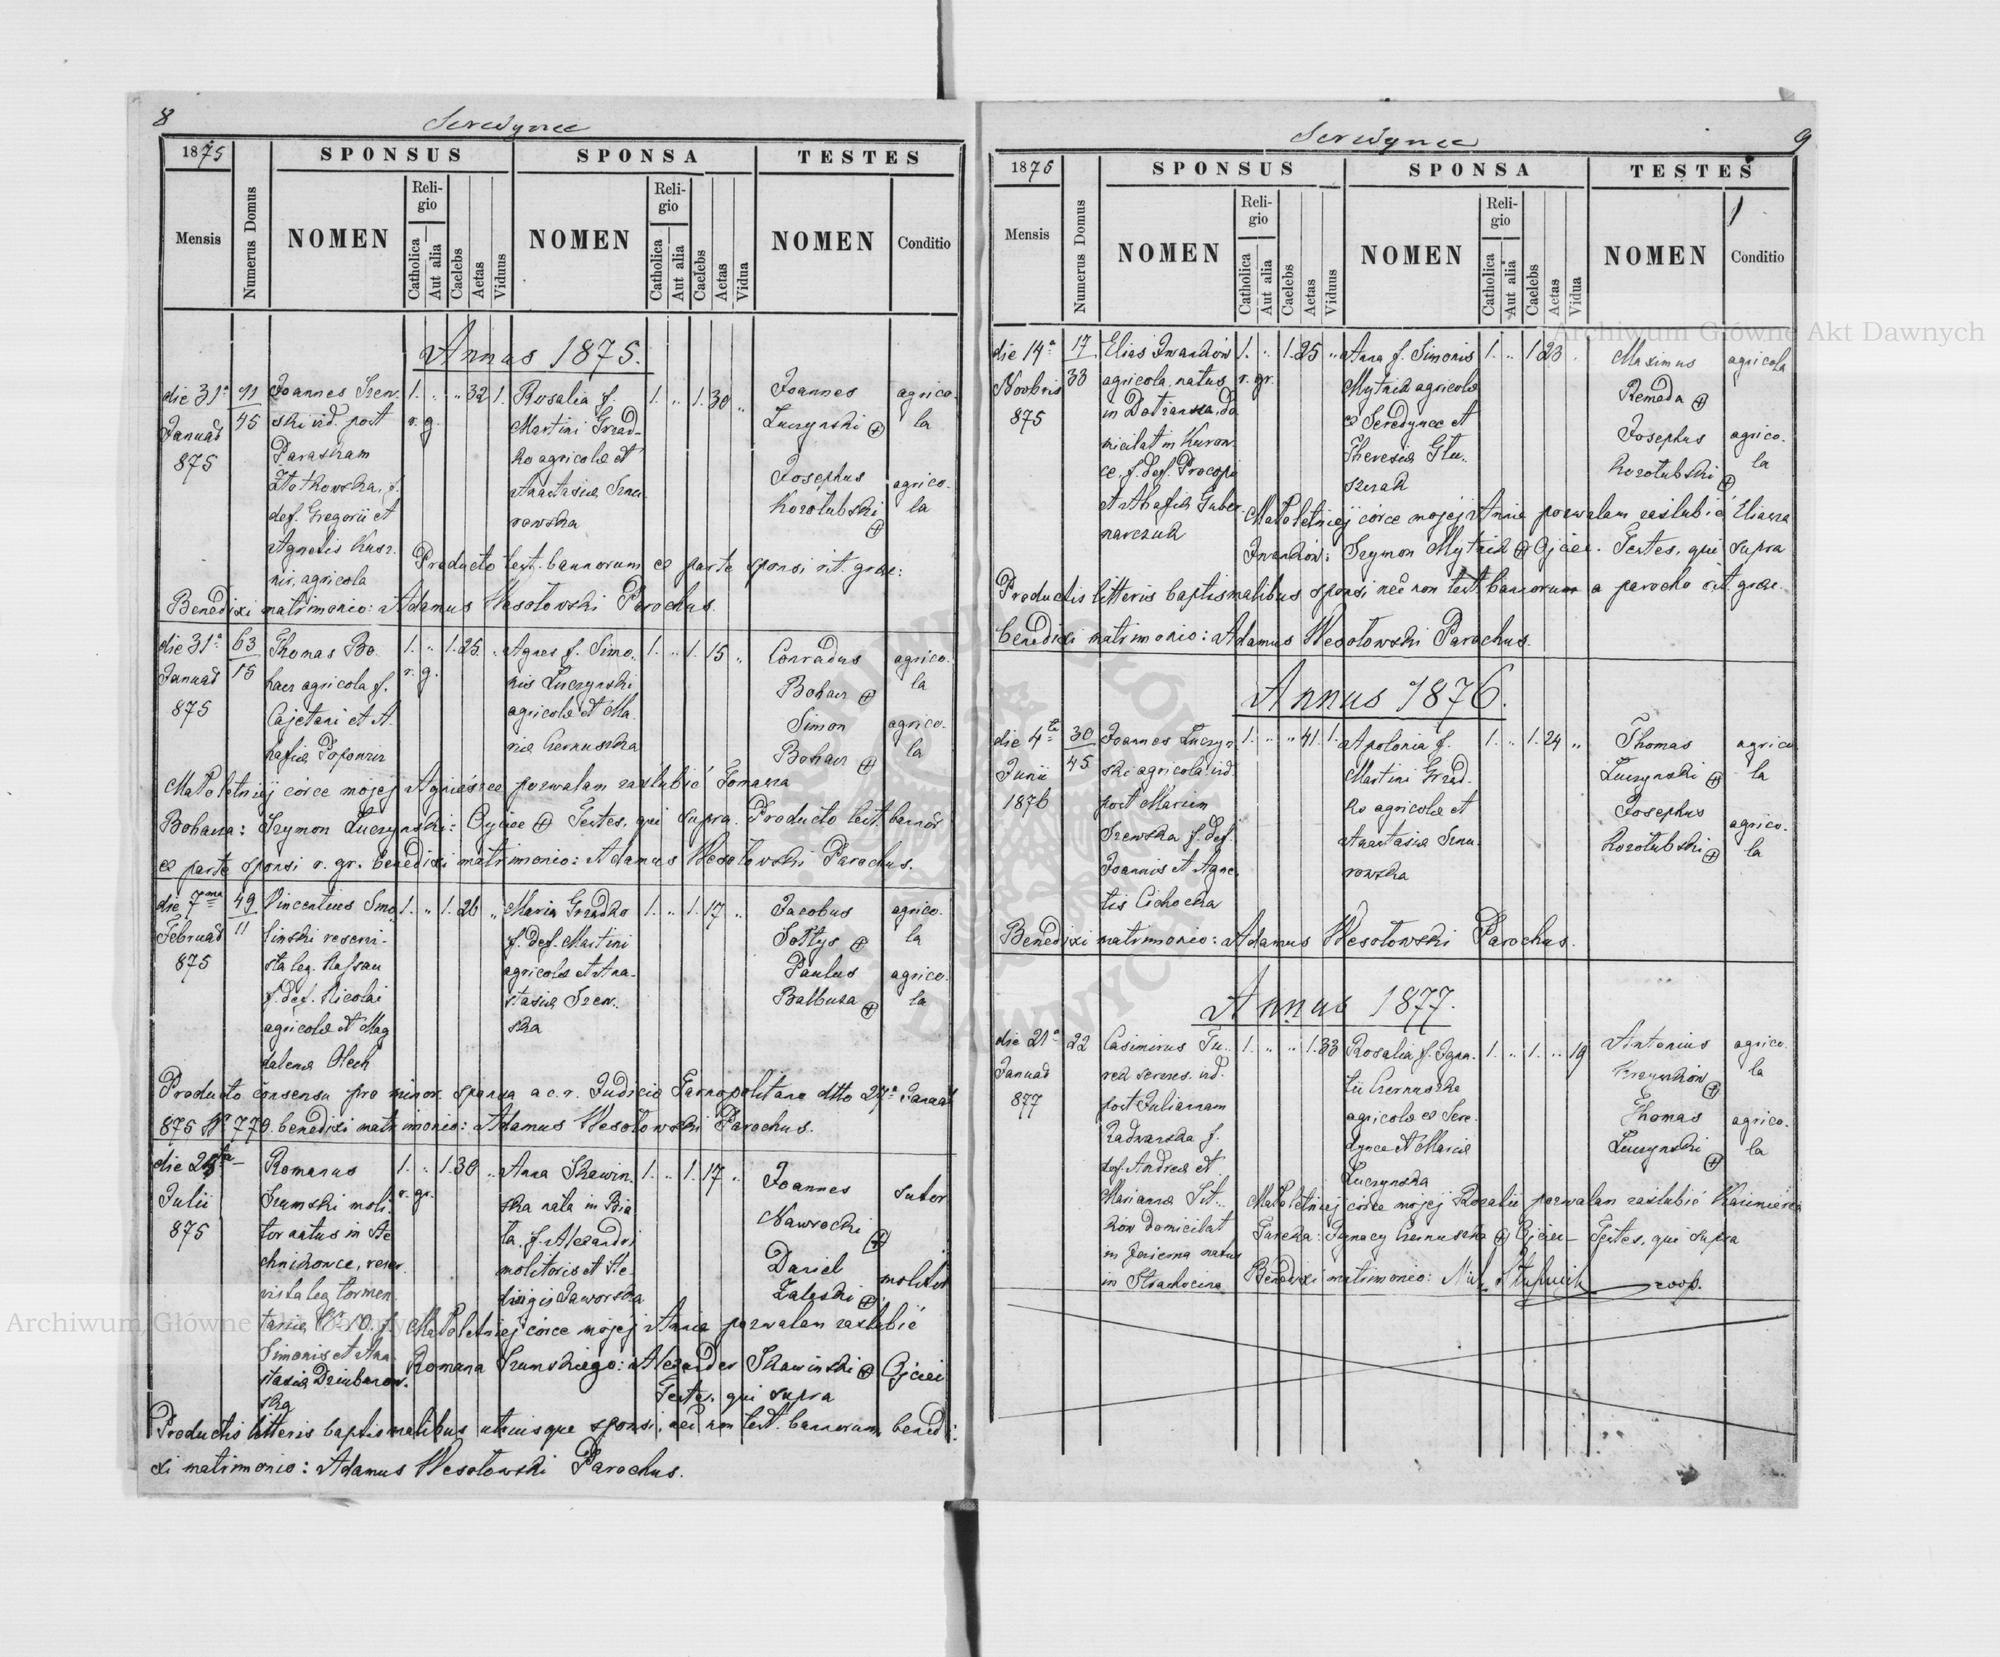 8
Seredynce
1875
SPONSUS
SPONSA
TESTES
Mensis
Numerus Domus
NOMEN
Religio
Catholica
Aut alia
Caelebs
Aetas
Viduus
NOMEN
Religio
Catholica
Aut alia
Caelebs
Aetas
Vidua
NOMEN
Conditio
Annus 1875.
die 31a
Januar
875
45
Joannes Szew-
ski vid. post
Parascham
Złotkowska, f.
def. Gregorii et
Agnetis Kusz-
nir, agricola
1. " " 32 1.
r. g.
Rosalia f.
Martini Grzad-
ko agricolæ et
Anastasiæ Sznu-
rowska
1. " 1. 30 "
Joannes
Luczynski
Josephus
Korotubski
agrico-
la
agrico-
la
Producto test. bannorum ex parte sponsi rit. græc:
Benedixi matrimonio: Adamus Wesołowski Parochus.
die 31a
Januar
875
63
15
Thomas Bo-
hacz agricola f.
Cajetani et A-
hafiæ Popowicz
1. " 1. 25 "
r. g.
Agnes f. Simo-
nis Luczynski
agricolæ et Ma-
riæ Czernuszka
1. " 1. 15 "
Conradus
Bohacz
Simon
Bohacz
agrico-
la
agrico-
la
Małoletniej córce mojej Agnieszce pozwalam zaslubić Tomasza
Bohacza: Szymon Luczynski: Ojciec Testes, qui supra. Producto test. bannor
ex parte sponsi r. gr. benedixi matrimonio: Adamus Wesołowski Parochus.
die 7ma
Februar
875
49
11
Vincentius Smo-
linski reservi-
sta leg. Nassau
f. def. Nicolai
agricolæ et Mag-
dalenæ Olech
1. " 1. 26 "
Maria Grzadko
f. def. Martini
agricolæ et Ana-
stasiæ Szew-
ska
1. " 1. 17 "
Jacobus
Sołtys
Paulus
Balbuza
agrico-
la
agrico-
la
Producto consensu pro minor. sponsa a c. r. Judicio Tarnopolitano dtto 27a Januar
875 Nr 779. benedixi matrimonio: Adamus Wesołowski Parochus.
die 25ta
Julii
875
Romanus
Szumski moli-
tor natus in
chnikowce, reser-
vista leg. tormen-
Simonis et Ana-
stasiæ Dziubanow-
ska
1. " 1. 30 "
r. gr.
Anna Skawin-
ska nata in Bia-
ła, f. Alexandri
molitoris et He-
dvigis Jaworska
1. " 1. 17 "
Joannes
Nawrocki
Daniel
Zaleski
sutor
molitor
Małoletniej córce mojej Annie pozwalam zaslubić
Romana Szumskiego: Alexander Skawinski Ojciec
Testes, qui supra
Productis litteris baptismalibus utriusque sponsi, nec non test. bannorum benedi-
xi matrimonio: Adamus Wesołowski Parochus.
Seredynce
9
1875
SPONSUS
SPONSA
TESTES
Mensis
Numerus Domus
NOMEN
Religio
Catholica
Aut alia
Caelebs
Aetas
Viduus
NOMEN
Religio
Catholica
Aut alia
Caelebs
Aetas
Vidua
NOMEN
Conditio
die 14a
Novbris
875
17
33
Elias Iwanków
agricola, natus
in Dotzanka, do-
micilat in Kurow-
ce, f. def. Procopii
et Ahafiæ Guber-
narczuk
1. " 1. 25 "
r. gr.
Anna f. Simonis
Mytnik agricolæ
ex Seredynce et
Theresiæ Głu-
szczak
1. " 1. 23
Maximus
Remeda
Josephus
Korotubski
agricola
agrico-
la
Małoletniej córce mojej Annie pozwalam zaślubić Eliasza
Iwanków: Szymon Mytnik Ojciec. Testes, qui supra
Productis litteris baptismalibus sponsi nec non test. bannorum a parocho rit. græc.
benedixi matrimonio: Adamus Wesołowski Parochus.
Annus 1876.
die 4ta
Junii
1876
30
45
Joannes Luczyn-
ski agricola vid.
post Mariam
Szewska f. def.
Joannis et Agne-
tis Cichocka
1. " " 41. 1.
Apolonia f.
Martini Grzad-
ko agricolæ et
Anastasiæ Sznu-
rowska
1. " 1. 24 "
Thomas
Luczynski
Josephus
Korotubski
agrico-
la
agrico-
la
Benedixi matrimonio: Adamus Wesołowski Parochus.
Annus 1877.
die 21a
Januar
877
22
Casimirus Tu-
vid.
post Juliannam
Radwanska f.
def. Andreæ et
Mariannæ Sit-
ków domicilat
in Jezierna natus
in Strachocina
1. " " 1. 33
Rosalia f. Igna-
tii Czernuszka
agricolæ ex Sere-
dynce et Mariæ
Luczynska
1. " 1. " 19
Antonius
Thomas
Luczynski
agrico-
la
agrico-
la
Małoletniej córce mojej Rozalii pozwalam zaślubić Kazimierza
Ignacy Czernuszka Ojciec – Testes, qui supra
Benedixi matrimonio: coop.
Archiwum Główne Akt Dawnych
Archiwum Główne Akt Dawnych